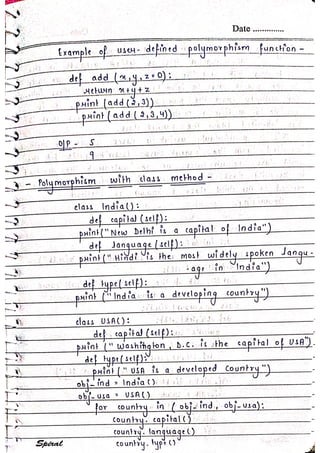 Date ..............
Example of user-defined polymorphism function -
def add (x, y, z=0):
return x+y+z
print (add (2,3))
print (add (2,3,4))
O|P - 5
9
- Polymorphism with class method -
class India():
def capital (self):
print("New Delhi is a capital of India")
def language (self):
print("Hindi is the most widely spoken langu-
-age in India")
def type (self):
print ("India is a developing country")
class USA():
def capital (self):
print (" Washington, D.C. is the capital of USA")
def type (self):
print (" USA is a developed country")
obj_ind = India ()
obj_usa = USA()
for country in ( obj_ind, obj_usa):
country. capital ()
country. language()
country. type ()
Spiral